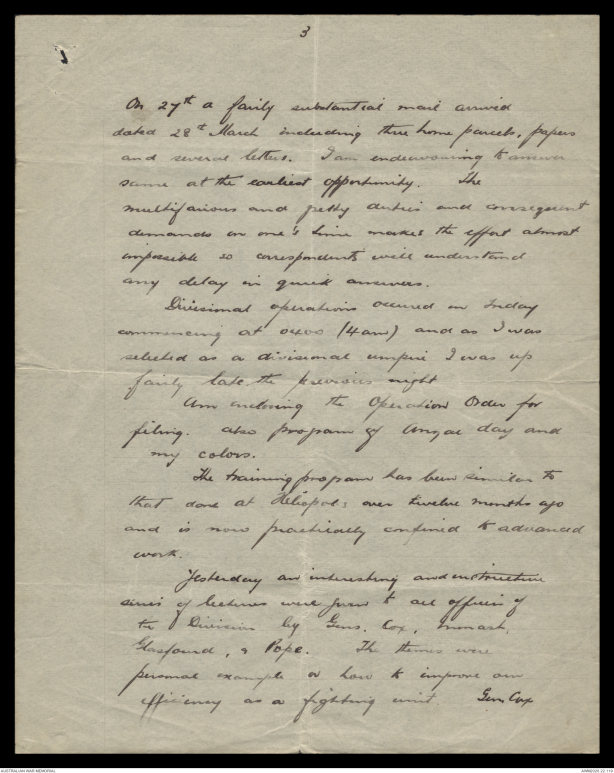 3
On 27th a fairly substantial mail arrived
dated 28th March including three home parcels, papers
and several letters. I am endeavouring to answer
same at the earliest opportunity. The
multifarious and petty duties and consequent
demands on one's time makes the effort almost
impossible so correspondents will understand
any delay in quick answers.
Divisional operations occured on Friday
commencing at 0400 (4am) and as I was
selected as a divisional umpire I was up
fairly late the previous night
Am enclosing the Operation Order for
filing. also program of Anzac day and
my colors.
The training program has been similar to
that done at Heliopolis over twelve months ago
and is now practically confined to advanced
work.
Yesterday an interesting and instructive
series of lectures were given to all officers of
the Division by Gens. Cox, Monash,
Glasfurd, & Pope. The themes were
personal example & how to improve our
efficiency as a fighting unit Gen Cox
AUSTRALIAN WAR MEMORIAL